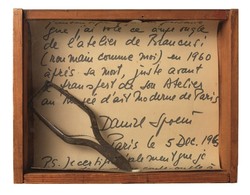 que j'ai volé ce coupe ongle
de l'atelier de Brancusi
(roumain comme moi) en 1960
après sa mort, juste avant
le transfert de son Atelier
au Musée d'art Moderne de Paris
Daniel Spoerri
Paris le 5 DEC. 196
P.S. je certifie